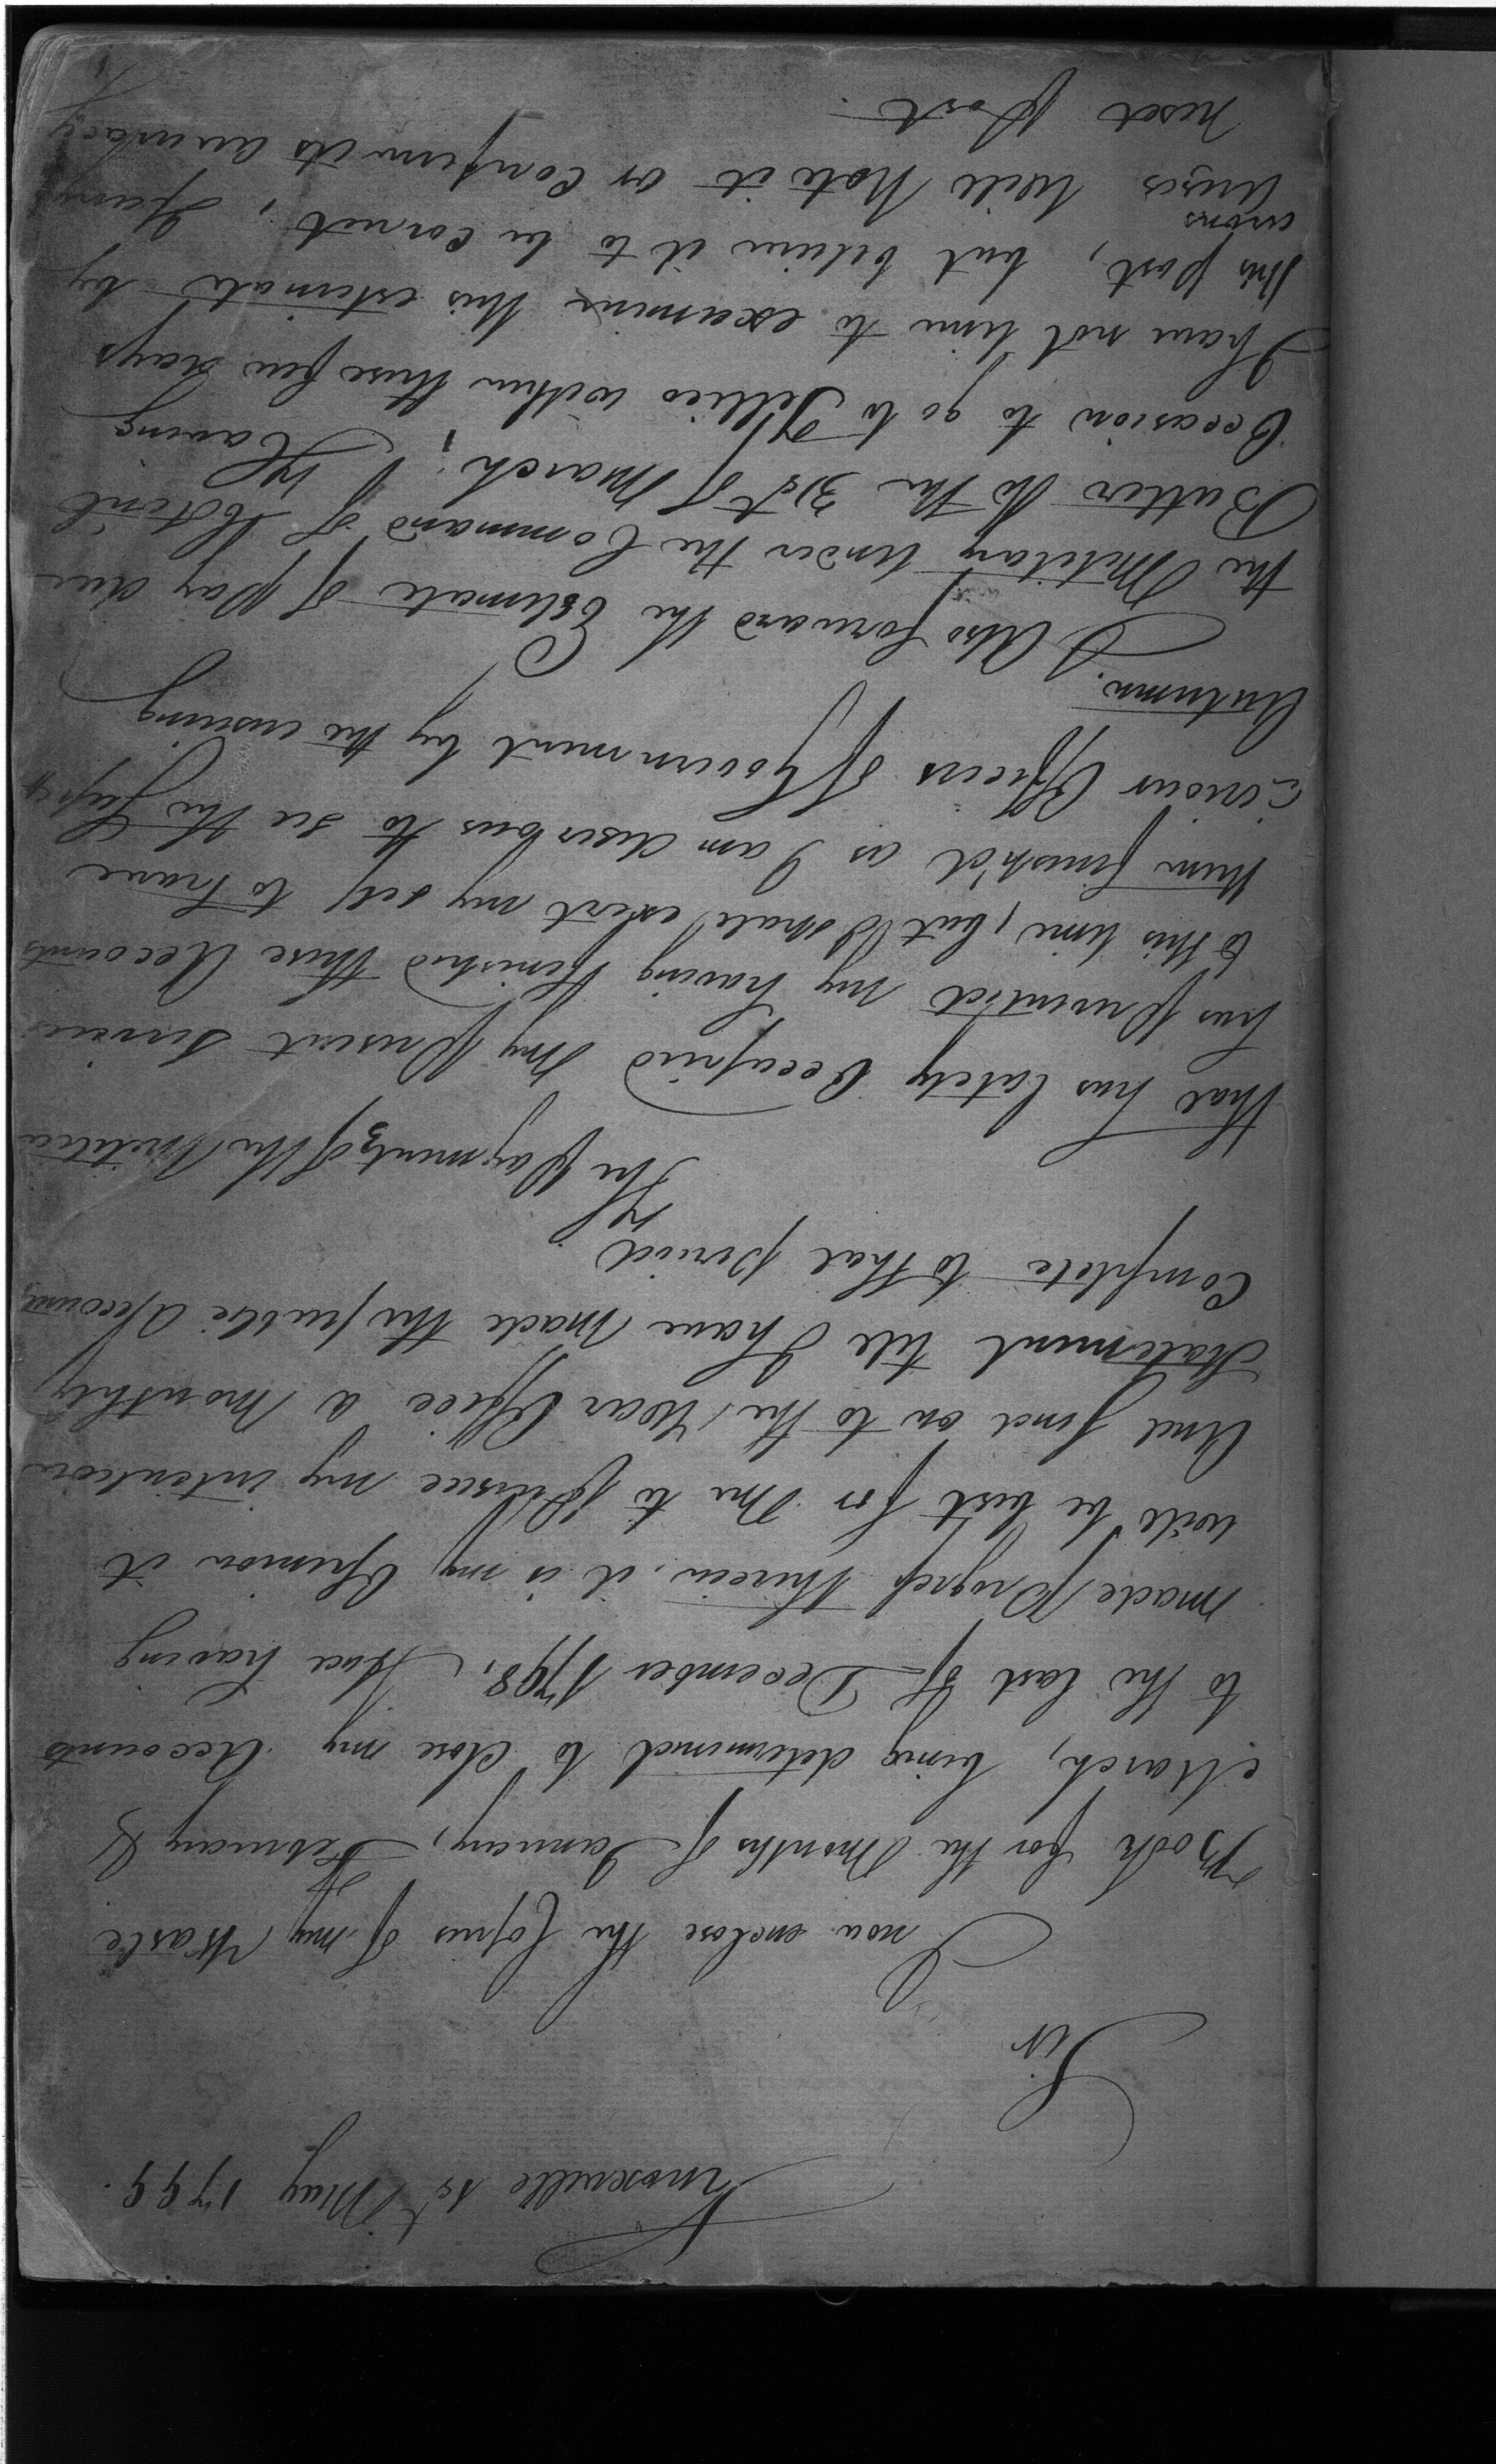 Knoxville 1st May 1799.
Sir
I now enclose the Copies of my Waste
Book for the Months of January, February &
March, being determined to close my Accounts
to the last of December 1798, And having
made Progress therein, it is my Opinion it
will be best for me to Pursue my intention
And Send on to the War Office a Monthly
Statement till I have Made the public Accounts
Complete to that period
The Payments of the Militia
that has lately Occupied My Present Services
has prevented my having finished these Accounts
to this time, but I shall exert my self to have
them finish'd as I am desirous to see the
Officers of Government by the ensuing
Autumn.
I Also forward the Estimate of Pay due
the Military Under the Command of
Butler to the 31st of March; Having
Occasion to go to Tellico within these few days
I have not time to examine this estimate by
this post, but believe it to be correct, if any
errors
Will Note it or Confirm its accuracy
next Post.